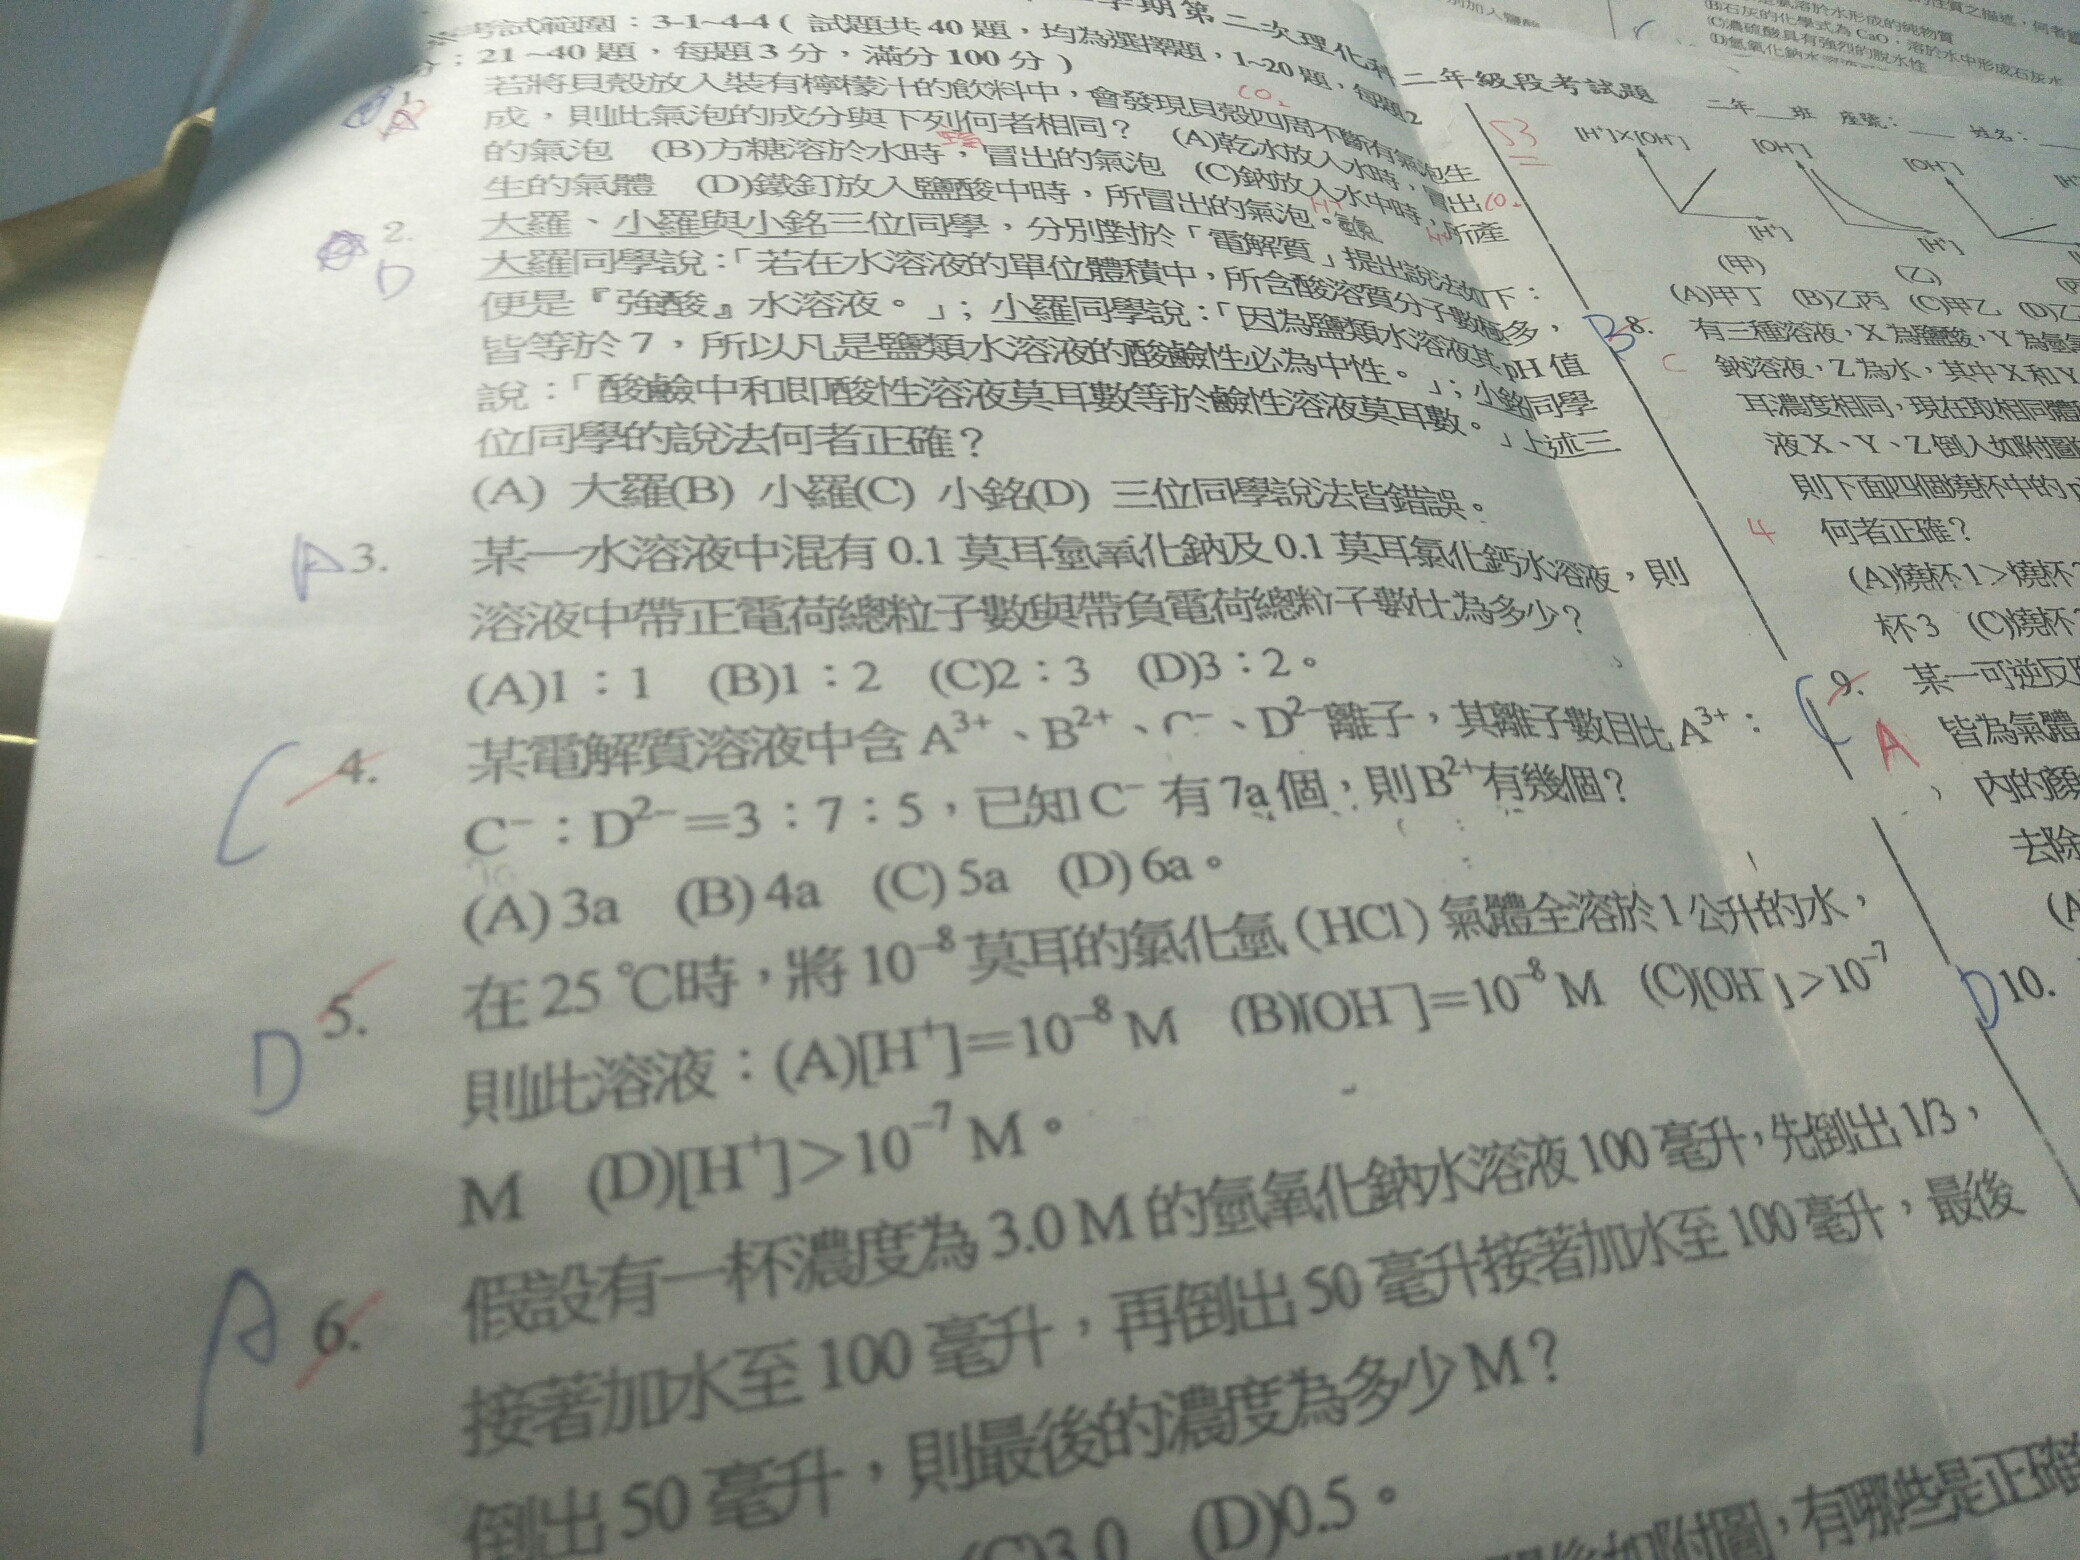 學期第二次理化科二年級段考試題
考試範圍:3-1~4-4(試題共40題,均為選擇題,1~20題,每題2
分:21~40題,每題3分,滿分100分)
二年 班 座號: 姓名:
1.
若將貝殼放入裝有檸檬汁的飲料中,會發現貝殼四周不斷有氣泡生
CO₂
成,則此氣泡的成分與下列何者相同? (A)乾冰放入水時,冒出
CO₂
的氣泡 (B)方糖溶於水時,冒出的氣泡 (C)鈉放入水中時,所產
生的氣體 (D)鐵釘放入鹽酸中時,所冒出的氣泡。
D
2. 大羅、小羅與小銘三位同學,分別對於「電解質」提出說法如下:
大羅同學說:「若在水溶液的單位體積中,所含酸溶質分子數極多,
便是『強酸』水溶液。」;小羅同學說:「因為鹽類水溶液其pH值
皆等於7,所以凡是鹽類水溶液的酸鹼性必為中性。」;小銘同學
說:「酸鹼中和即酸性溶液莫耳數等於鹼性溶液莫耳數。」上述三
位同學的說法何者正確?
(A) 大羅(B) 小羅(C) 小銘(D) 三位同學說法皆錯誤。
A
3. 某一水溶液中混有0.1莫耳氫氧化鈉及0.1莫耳氯化鈣水溶液,則
溶液中帶正電荷總粒子數與帶負電荷總粒子數比為多少?
(A)1:1 (B)1:2 (C)2:3 (D)3:2。
C
4. 某電解質溶液中含A³⁺、B²⁺、C⁻、D²⁻離子,其離子數目比A³⁺:
C⁻:D²⁻=3:7:5,已知C⁻有7a個,則B²⁺有幾個?
(A)3a (B)4a (C)5a (D)6a。
D
5. 在25℃時,將10⁻⁸莫耳的氯化氫(HCl)氣體全溶於1公升的水,
則此溶液:(A)[H⁺]=10⁻⁸M (B)[OH⁻]=10⁻⁸M (C)[OH⁻]>10⁻⁷
M (D)[H⁺]>10⁻⁷M。
A
6. 假設有一杯濃度為3.0M的氫氧化鈉水溶液100毫升,先倒出1/3,
接著加水至100毫升,再倒出50毫升接著加水至100毫升,最後
倒出50毫升,則最後的濃度為多少M?
(C)3.0 (D)0.5。
附圖,有哪些是正確
53
[H⁺]×[OH⁻]
[OH⁻]
[OH⁻]
[H⁺]
[H⁺]
(甲)
(乙)
(A)甲丁 (B)乙丙 (C)甲乙 (D)乙
B
8. 有三種溶液,X為鹽酸,Y為氫氧
C
鈉溶液,Z為水,其中X和Y
耳濃度相同,現在取相同體
液X、Y、Z倒入如附圖
則下面四個燒杯中的p
4
何者正確?
(A)燒杯1>燒杯
杯3 (C)燒杯
C
9. 某一可逆反
A
皆為氣體
內的顏
去除
(A
D
10.
別加入鹽酸
溶於水形成的純物質
(B)石灰的化學式為CaO,溶於水中形成石灰水
(C)濃硫酸具有強烈的脫水性
(D)氫氧化鈉水